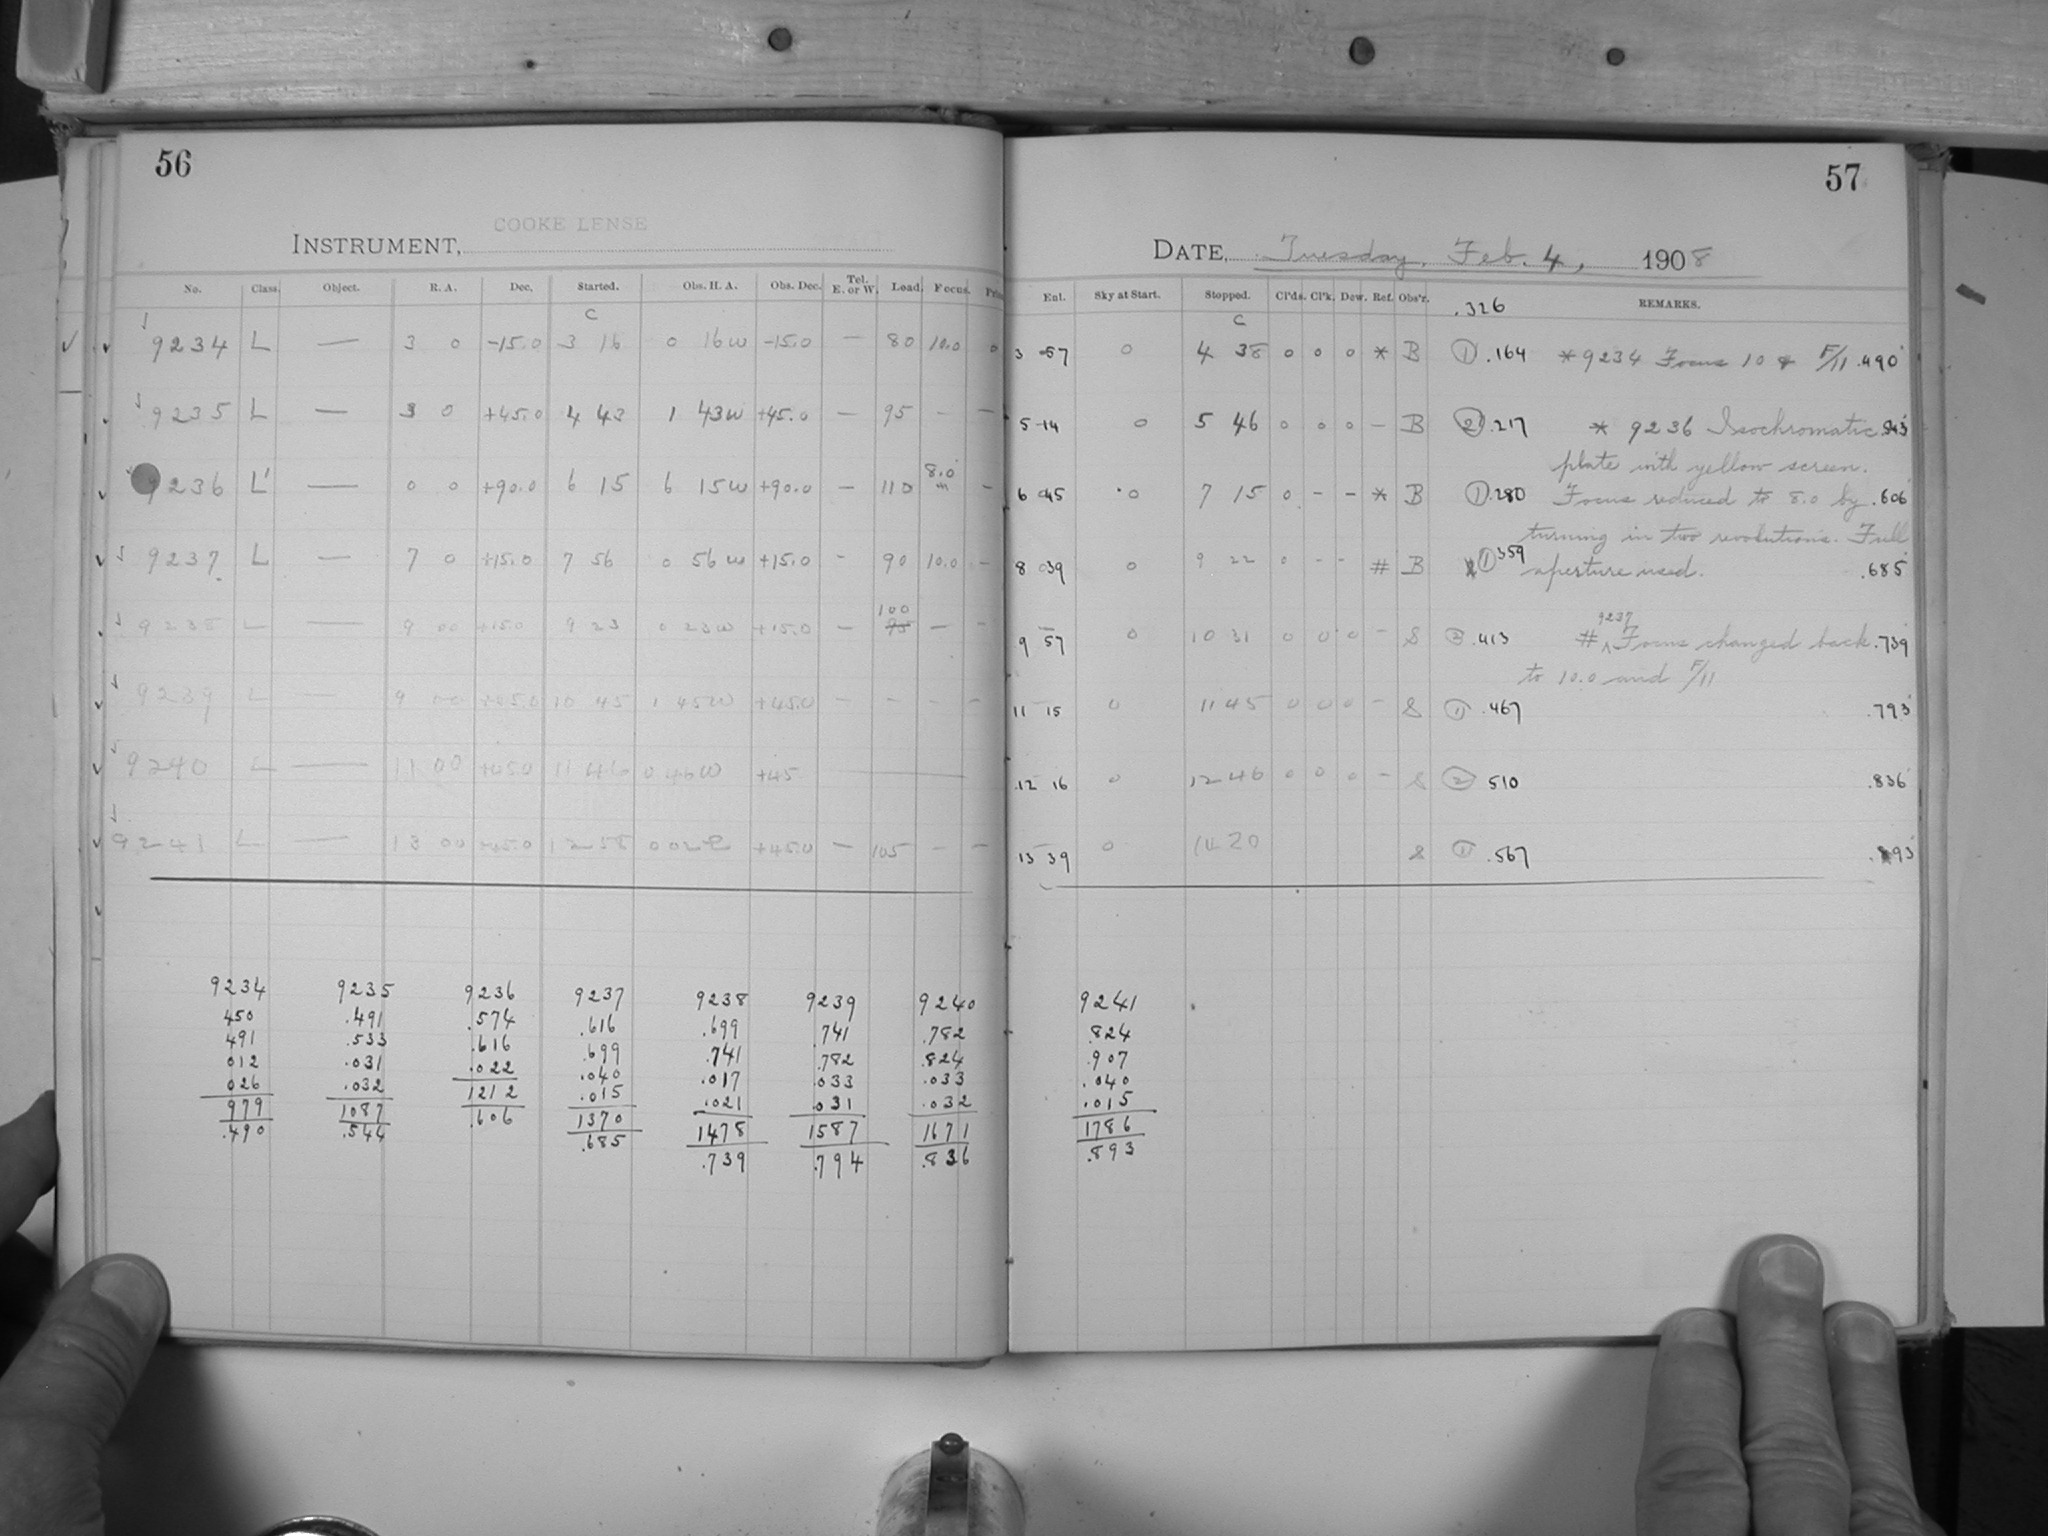 56
COOKE LENSE
INSTRUMENT,
No. Class. Object. R. A. Dec. Started. Obs. H. A. Obs. Dec. Tel. E. or W. Load. Focus.
C
√ 9234 L — 3 0 -15.0 3 16 0 16w -15.0 — 80 10.0 0
9235 L — 3 0 +45.0 4 43 1 43w +45.0 — 95 - —
9236 L' — 0 0 +90.0 6 15 6 15w +90.0 — 110 8.0 -
9237 L — 7 0 +15.0 7 56 0 56w +15.0 - 90 10.0 -
100
9238 L — 9 00 +15.0 9 23 0 23w +15.0 — 95 — -
9239 L — 9 00 +45.0 10 45 1 45w +45.0 - - - -
9240 L — 11 00 +45.0 11 46 0 46w +45
9241 L — 13 00 +45.0 12 58 0 02e +45.0 — 105 — -
9234 9235 9236 9237 9238 9239 9240
450 .491 .574 .616 .699 .741 .782
491 .533 .616 .699 .741 .782 .824
012 .031 .022 .040 .017 .033 .033
026 .032 1212 .015 .021 .031 .032
979 1087 .606 1370 1478 1587 1671
.490 .544 .685 .739 .794 .836
57
DATE, Tuesday, Feb. 4, 1908
Ent. Sky at Start. Stopped. Cl'ds. Cl'k. Dew. Ref. Obs'r. .326 REMARKS.
C
3 57 0 4 38 0 0 0 * B ① .164 * 9234 Focus 10 & F/11 .490
5 14 0 5 46 0 0 0 — B ② .217 * 9236 Isochromatic .543
plate with yellow screen.
6 45 0 7 15 0 - - * B ① .280 Focus reduced to 8.0 by .606
turning in two revolutions. Full
8 39 0 9 22 0 - - # B ① 359 aperture used. .685
9237
9 57 0 10 31 0 0 0 - S ② .413 # ^ Focus changed back .739
to 10.0 and F/11
11 15 0 11 45 0 0 0 - S ① .467 .793
12 16 0 12 46 0 0 0 - S ② 510 .836
13 39 0 14 20 S ① .567 .893
9241
.824
.907
.040
.015
1786
.893